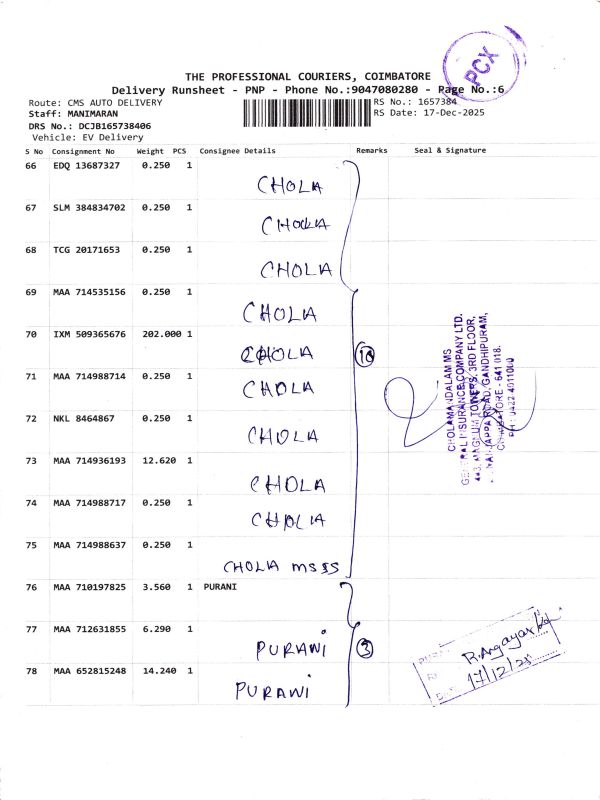 PCX
THE PROFESSIONAL COURIERS, COIMBATORE
Delivery Runsheet - PNP - Phone No.:9047080280 - Page No.:6
Route: CMS AUTO DELIVERY RS No.: 1657384
Staff: MANIMARAN RS Date: 17-Dec-2025
DRS No.: DCJB165738406
Vehicle: EV Delivery
S No Consignment No Weight PCS Consignee Details Remarks Seal & Signature
66 EDQ 13687327 0.250 1 CHOLA
67 SLM 384834702 0.250 1 CHOLA
68 TCG 20171653 0.250 1 CHOLA
69 MAA 714535156 0.250 1 CHOLA
70 IXM 509365676 202.000 1 CHOLA 10
71 MAA 714988714 0.250 1 CHOLA
72 NKL 8464867 0.250 1 CHOLA
73 MAA 714936193 12.620 1 CHOLA
74 MAA 714988717 0.250 1 CHOLA
75 MAA 714988637 0.250 1 CHOLA MS
CHOLAMANDALAM MS
GENERAL INSURANCE COMPANY LTD.
3RD FLOOR,
GANDHIPURAM,
COIMBATORE - 641 018.
76 MAA 710197825 3.560 1 PURANI
77 MAA 712631855 6.290 1 PURANI 3
78 MAA 652815248 14.240 1 PURANI
17/12/25